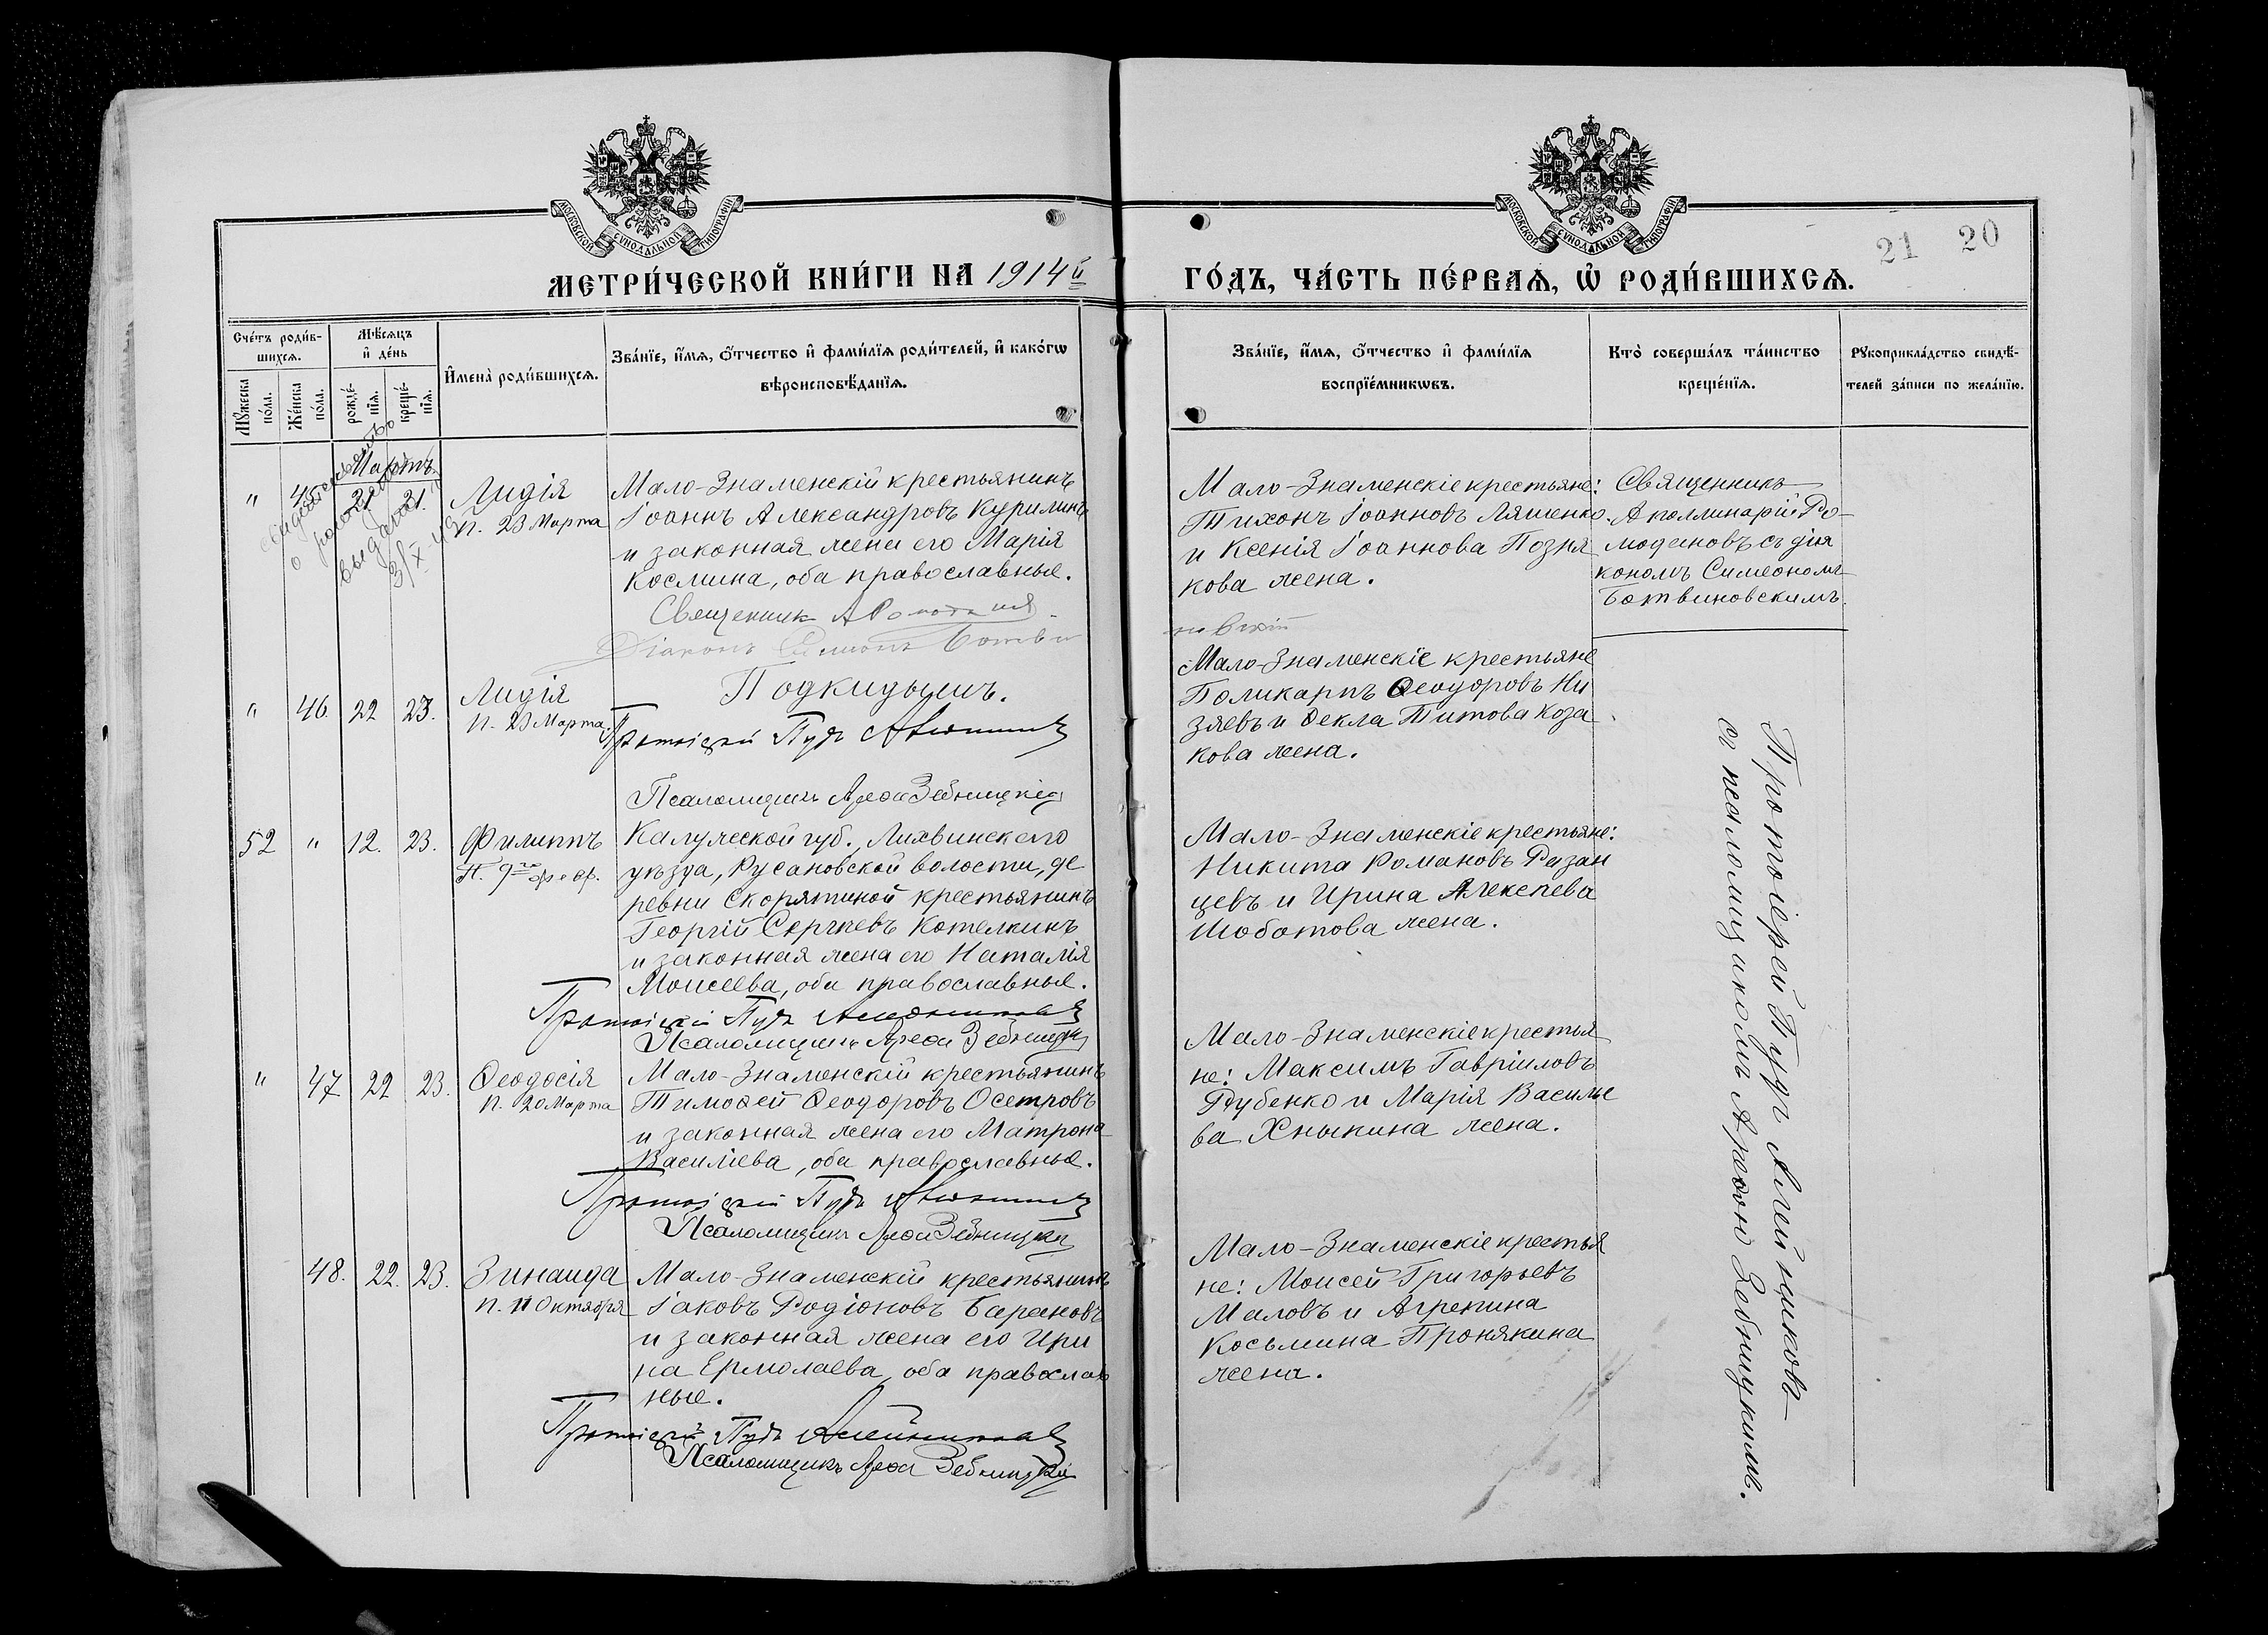 МОСКОВСКОЙ СУНОДАЛЬНОЙ ТИПОГРАФІИ
МОСКОВСКОЙ СУНОДАЛЬНОЙ ТИПОГРАФІИ
21 20
МЕТРИ́ЧЕСКОЙ КНИ́ГИ НА 1914й
ГО́ДЪ, ЧА́СТЬ ПЕ́РВАѦ, Ѡ҆ РОДИ́ВШИХСѦ.
Сче́тъ роди́в-
шихсѧ.
Мꙋ́жеска
по́ла.
Же́нска
по́ла.
Мѣ́сѧцъ
и҆ де́нь
рожде́-
нїѧ.
креще́-
нїѧ.
И҆мена̀ роди́вшихсѧ.
Зва́нїе, и҆́мѧ, ѻ҆́тчество и҆ фами́лїѧ роди́телей, и҆ како́гѡ
вѣроисповѣ́данїѧ.
Зва́нїе, и҆́мѧ, ѻ҆́тчество и҆ фами́лїѧ
воспрїе́мникѡвъ.
Кто̀ соверша́лъ та́инство
креще́нїѧ.
Рꙋкоприкла́дство свидѣ́-
телей за́писи по жела́нїю.
Мартъ
" 45 21 21.
о
выдано
3/X-
Лидія
п. 23 Марта
Мало-Знаменскій крестьянинъ
Іоаннъ Александровъ Курилинъ
и законная жена его Марія
Космина, оба православные.
Священник А
Діаконъ Симеонъ Ботви
Мало-Знаменскіе крестьяне:
Тихонъ Іоанновъ Ляшенко
и Ксенія Іоаннова Позня
кова жена.
новскій
Священникъ
Аполлинарій Ро-
модановъ съ діа
кономъ Симеономъ
Ботвиновскимъ.
" 46. 22 23.
Лидія
п. 23 Марта
Подкидышъ.
Протоіерей Пудъ Алейников
Псаломщикъ Арефа Зебницкій
Мало-Знаменскіе крестьяне
Поликарпъ Ѳеодоровъ Ни
зяевъ и Ѳекла Титова Коза
кова жена.
52 " 12. 23.
Филиппъ
П. 9го февр.
Калужской губ., Лихвинскаго
уѣзда, Русановской волости, де
ревни Скорятиной крестьянинъ
Георгій Сергѣевъ Котелкинъ
и законная жена его Наталія
Моисеева, оба православные.
Протоіерей Пудъ Алейников
Псаломщикъ Арефа Зебницкій
Мало-Знаменскіе крестьяне:
Никита Романовъ Разан
цевъ и Ирина Алексѣева
Шоботова жена.
" 47 22 23.
Ѳеодосія
п. 20 Марта
Мало-Знаменскій крестьянинъ
Тимоѳей Ѳеодоровъ Осетровъ
и законная жена его Матрона
Василіева, оба православные.
Протоіерей Пудъ Алейников
Псаломщикъ Арефа Зебницкій
Мало-Знаменскіе крестья
не: Максимъ Гавріиловъ
Рубенко и Марія Василье
ва Хныкина жена.
48. 22. 23.
Зинаида
п. 11 Октября
Мало-Знаменскій крестьянинъ
Іаковъ Родіоновъ Барановъ
и законная жена его Ири
на Ермолаева, оба православ
ные.
Протоіерей Пудъ Алейников
Псаломщикъ Арефа Зебницкій
Мало-Знаменскіе крестья
не: Моисей Григорьевъ
Маловъ и Агрепина
Косьмина Пронякина
жена.
Протоіерей Пудъ Алейниковъ
съ псаломщикомъ Арефою Зебницкимъ.